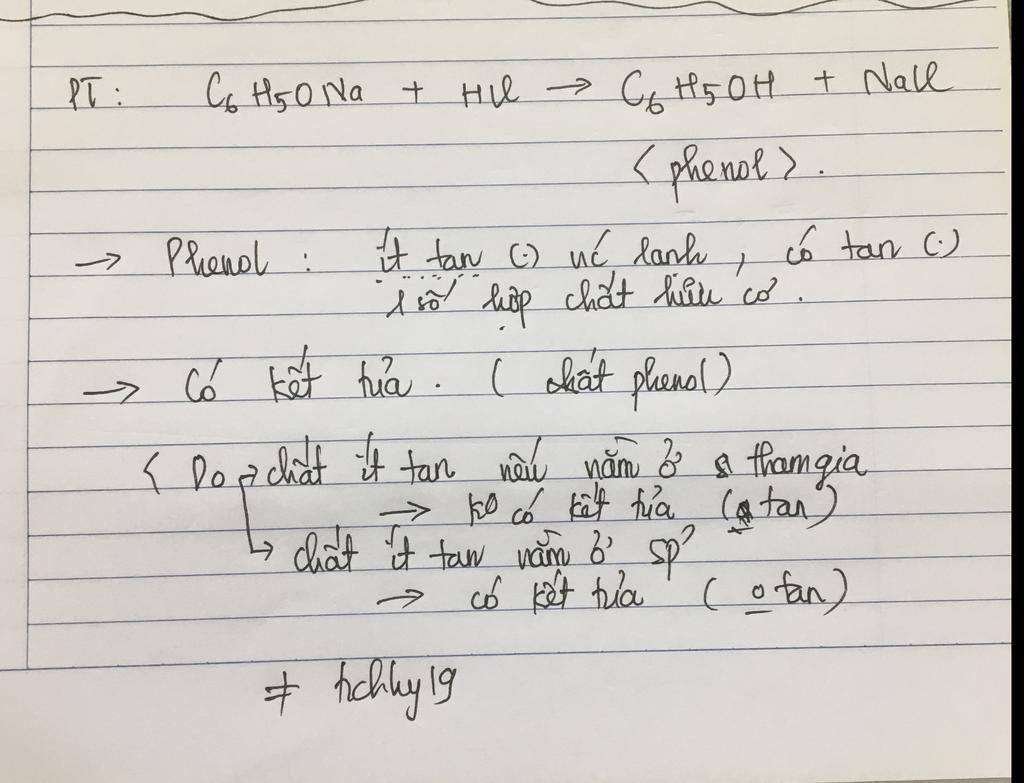 PT : C6H5ONa + HCl → C6H5OH + NaCl
< phenol > .
→ Phenol : ít tan (.) nć lạnh , có tan (.)
1 số hợp chất hữu cơ .
→ Có kết tủa . ( chất phenol )
< Do → chất ít tan nếu nằm ở tham gia
→ ko có kết tủa ( tan )
↳ chất ít tan nằm ở sp'
→ có kết tủa ( o tan )
≠ hchhy19